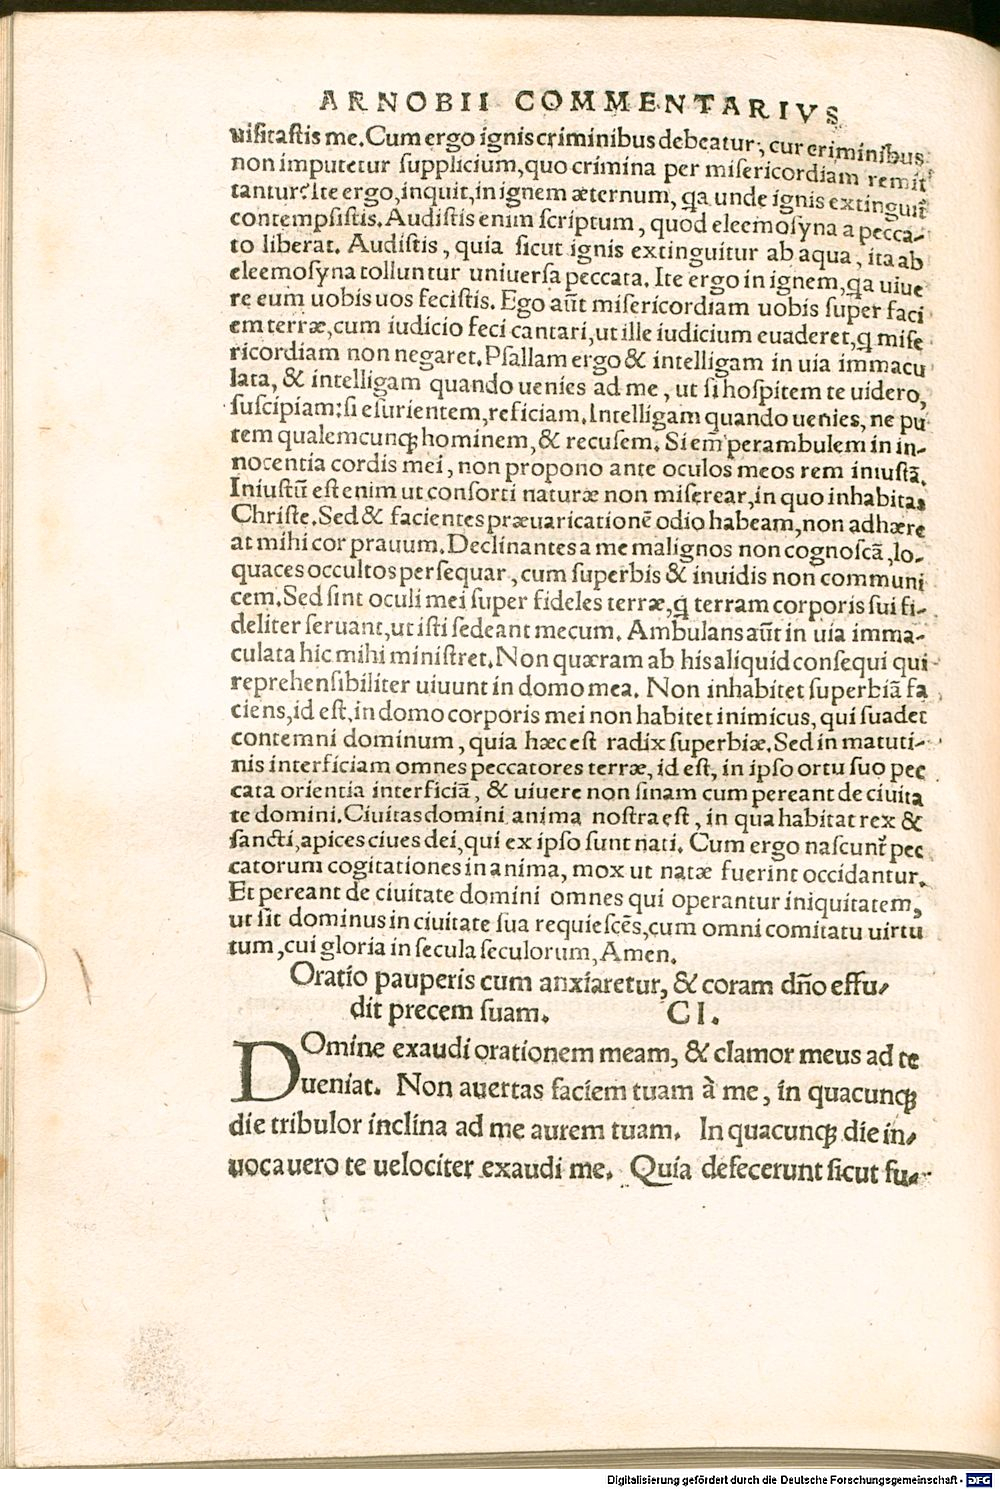 ARNOBII COMMENTARIVS
uiſitaſtis me. Cum ergo ignis criminibus debeatur, cur criminibus
non imputetur ſupplicium, quo crimina per miſericordiam remit
tantur? Ite ergo, inquit, in ignem æternum, qa unde ignis extinguit͛
contempſiſtis. Audiſtis enim ſcriptum, quod eleemoſyna a pecca-
to liberat. Audiſtis, quia ſicut ignis extinguitur ab aqua, ita ab
eleemoſyna tolluntur uniuerſa peccata. Ite ergo in ignem, qa uiue
re eum uobis uos feciſtis. Ego aūt miſericordiam uobis ſuper faci
em terræ, cum iudicio feci cantari, ut ille iudicium euaderet, q miſe
ricordiam non negaret. Pſallam ergo & intelligam in uia immacu
lata, & intelligam quando uenies ad me, ut ſi hoſpitem te uidero,
ſuſcipiam: ſi eſurientem, reficiam. Intelligam quando uenies, ne pu
tem qualemcunqꝫ hominem, & recuſem. Si em̃ perambulem in in-
nocentia cordis mei, non propono ante oculos meos rem iniuſtã.
Iniuſtū eſt enim ut conſorti naturæ non miſerear, in quo inhabitas
Chriſte. Sed & facientes præuaricationẽ odio habeam, non adhære
at mihi cor prauum. Declinantes a me malignos non cognoſcã, lo-
quaces occultos perſequar, cum ſuperbis & inuidis non communi
cem. Sed ſint oculi mei ſuper fideles terræ, q̃ terram corporis ſui fi-
deliter ſeruant, ut iſti ſedeant mecum. Ambulans aūt in uia imma-
culata hic mihi miniſtret. Non quæram ab his aliquid conſequi qui
reprehenſibiliter uiuunt in domo mea. Non inhabitet ſuperbiã fa
ciens, id eſt, in domo corporis mei non habitet inimicus, qui ſuadet
contemni dominum, quia hæc eſt radix ſuperbiæ. Sed in matuti-
nis interficiam omnes peccatores terræ, id eſt, in ipſo ortu ſuo pec
cata orientia interficiã, & uiuere non ſinam cum pereant de ciuita
te domini. Ciuitas domini anima noſtra eſt, in qua habitat rex &
ſancti, apices ciues dei, qui ex ipſo ſunt nati. Cum ergo naſcunt͛ pec
catorum cogitationes in anima, mox ut natæ fuerint occidantur.
Et pereant de ciuitate domini omnes qui operantur iniquitatem,
ut ſit dominus in ciuitate ſua requieſcẽs, cum omni comitatu uirtu
tum, cui gloria in ſecula ſeculorum, Amen.
Oratio pauperis cum anxiaretur, & coram dño effu-
dit precem ſuam. CI.
DOmine exaudi orationem meam, & clamor meus ad te
ueniat. Non auertas faciem tuam à me, in quacunqꝫ
die tribulor inclina ad me aurem tuam. In quacunqꝫ die in-
uocauero te uelociter exaudi me. Quia defecerunt ſicut fu-
Digitalisierung gefördert durch die Deutsche Forschungsgemeinschaft - DFG